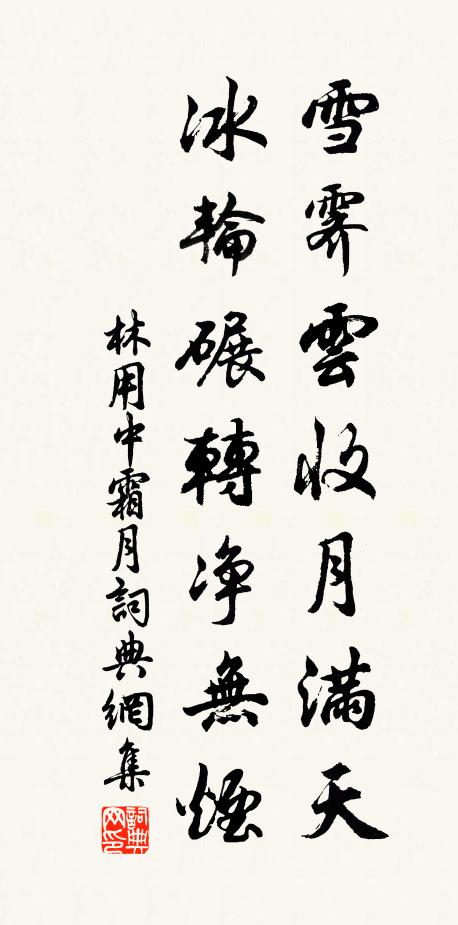 雪霽雲收月滿天
冰輪碾轉净無煙
林用中霜月詞典網集
詞典网印